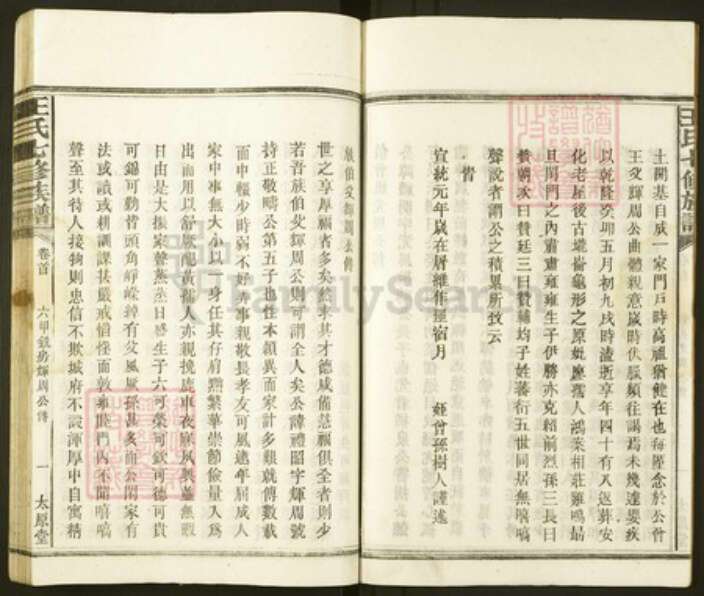 王氏七修族譜
土開基自成一家門戶時高祖猶健在也每陸念於公竹
王文輝周公曲體親意歲時伏臘頻往謁焉未幾遘嬰疾
以乾隆癸卯五月初九戌時溘逝享年四十有八返葬安
化老屋後古墟崙龜形之原妣廖孺人鴻案相莊雞鳴昧
旦閨門之內肅肅雍雍生子伊勝亦克紹前烈孫三長曰
贊朝次曰贊廷三曰贊輔均子姓蕃衍五世同居無嘻嗃
聲說者謂公之積累所致云
皆
宣統元年歲在屠維作噩窩月
姪曾孫樹人謹述
族伯父輝周公傳
世之享厚福者多矣然求其才德咸備慈福俱全者則少
若吾族伯父輝周公則可謂全人矣公諱禮昭字輝周號
持正敬疇公第五子也性本穎異而家計多艱就傅數載
而中輟少時弱不好弄事親敬長孝友可風逮年屆成人
家中事無大小以一身任其仔肩黜繁華崇節儉量入為
出而用以舒厥配黃孺人亦親挽鹿車夜寐夙興並無暇
日由是大振家聲蒸蒸日盛生子六可榮可欽可德可貴
可錫可勳皆頭角崢嶸綽有父風厥孫甚多而公閑家有
法或讀或耕訓課扶嚴戒惰怪而敦雍睦門內不聞嘻嗃
聲至其待人接物則忠信不欺城府不設渾厚中自寓精
王氏七修族譜
卷首
六甲鎮房輝周公傳
一
太原堂
FamilySearch